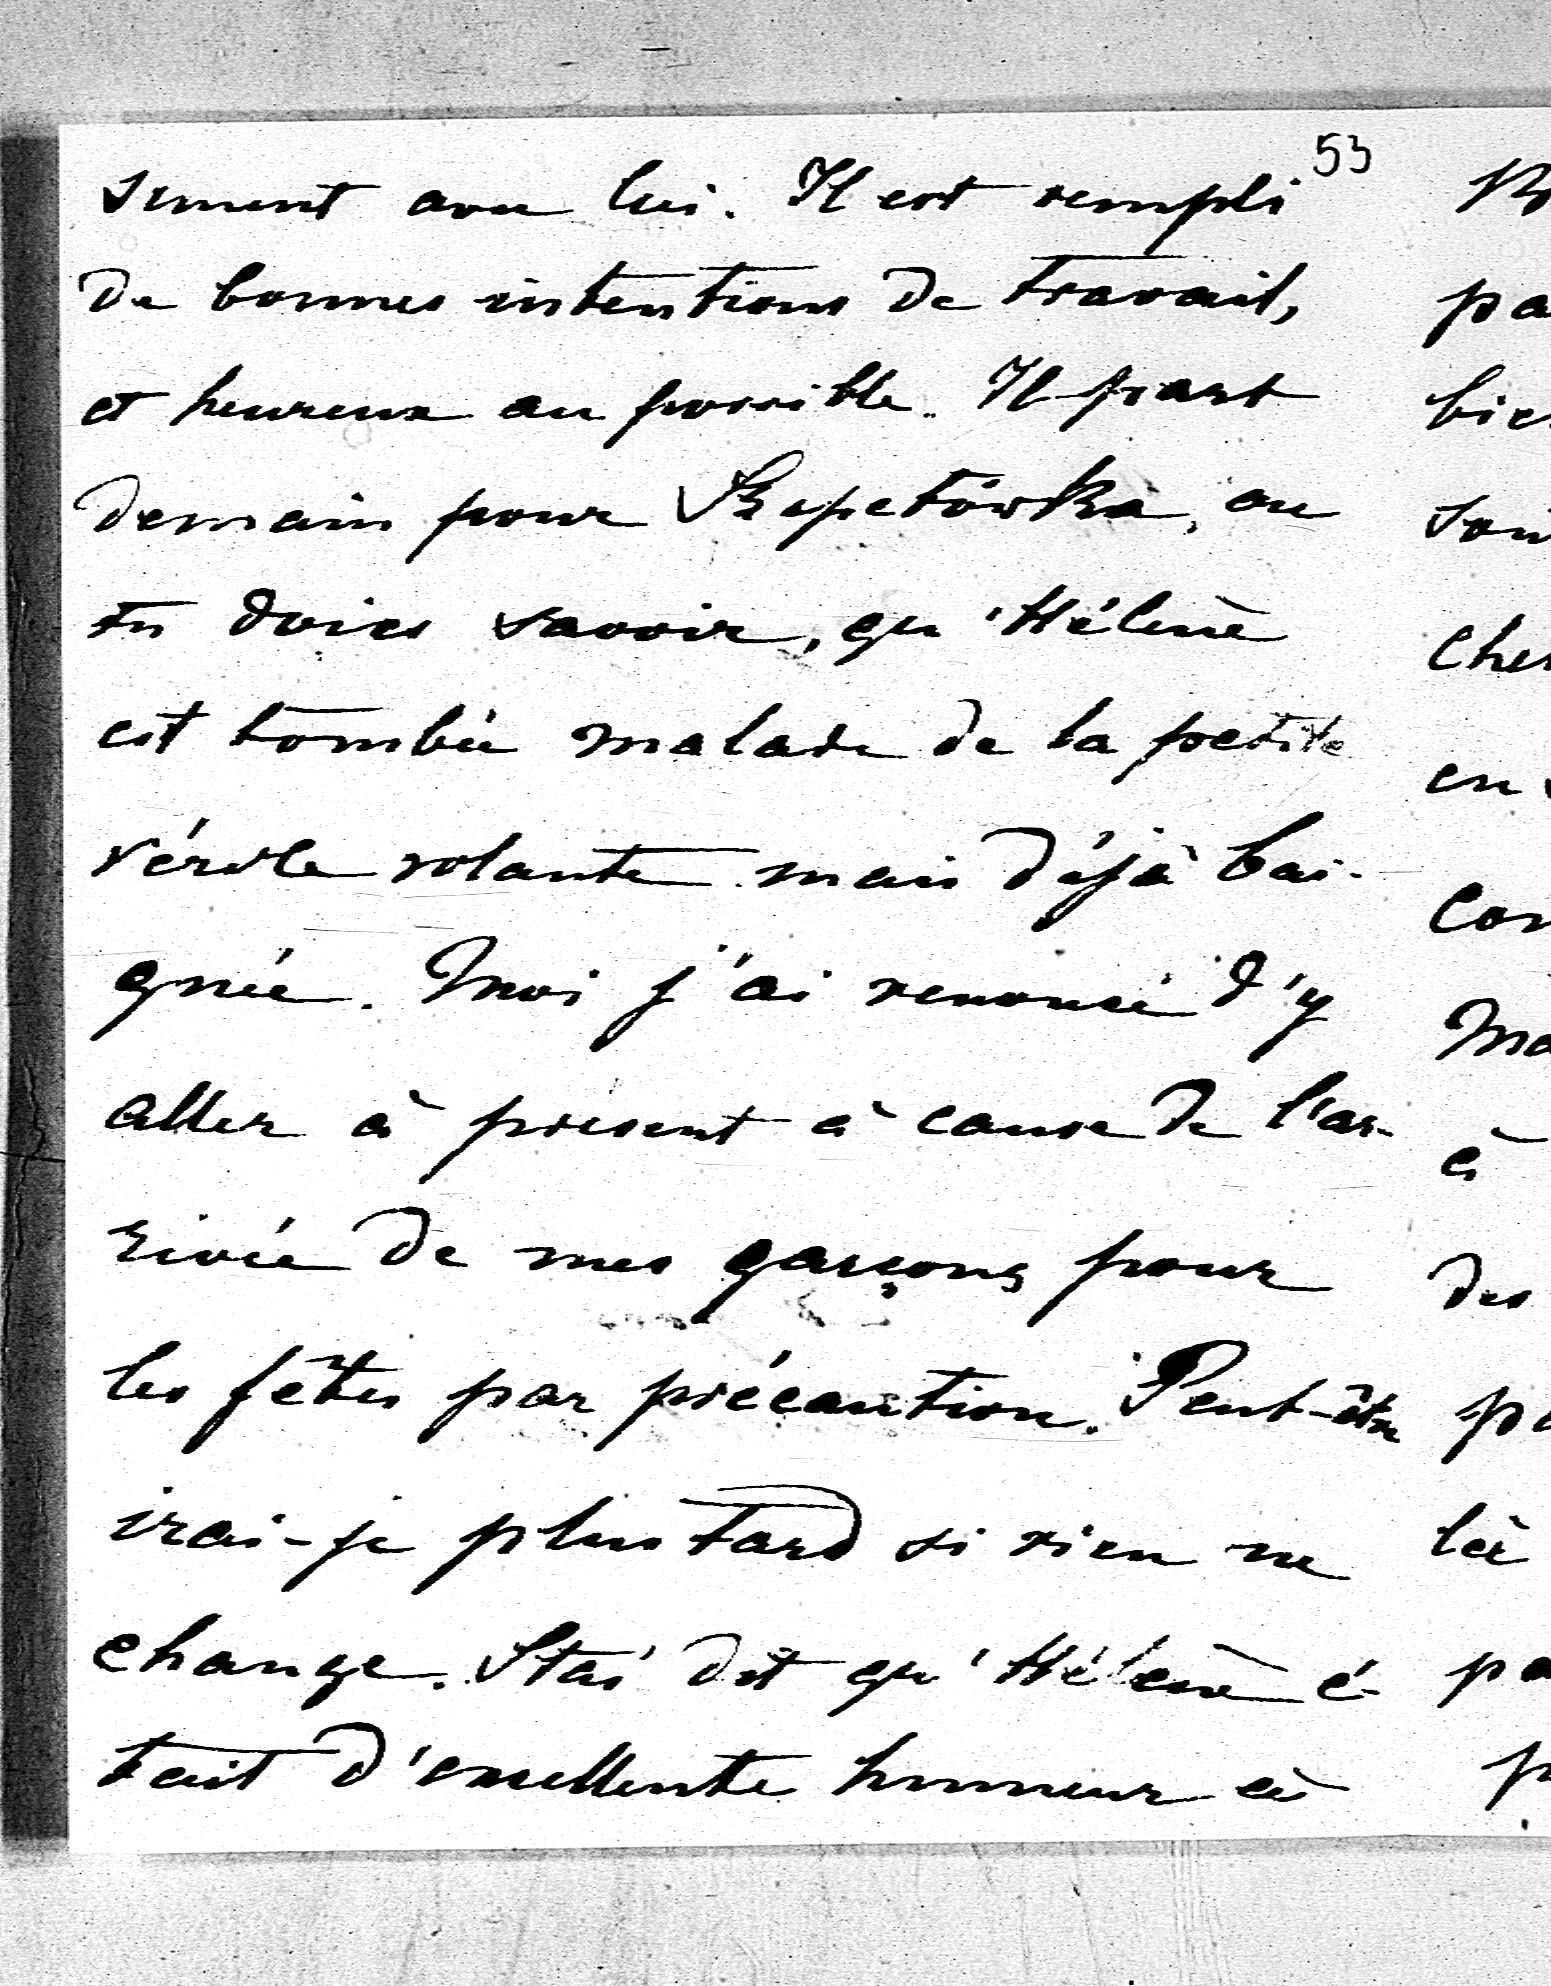 53
sement avec lui. Il est rempli
de bonnes intentions de travail,
et heureux au possible. Il part
demain pour Szepetówka, ou
tu doies savoir, qu'Hélène
est tombée malade de la petite
vérole volante mais déjà bai-
gnée. Moi j'ai renoncé d'y
aller à présent à cause de l'ar-
rivée de mes garçons pour
les fêtes par précaution. Peut-être
irai-je plus tard si rien ne
change. Staś dit qu'Hélène é-
tait d'excellente humeur et
pa
bie
soi
cher
en
con
Ma
à
des
pa
là
pa
p